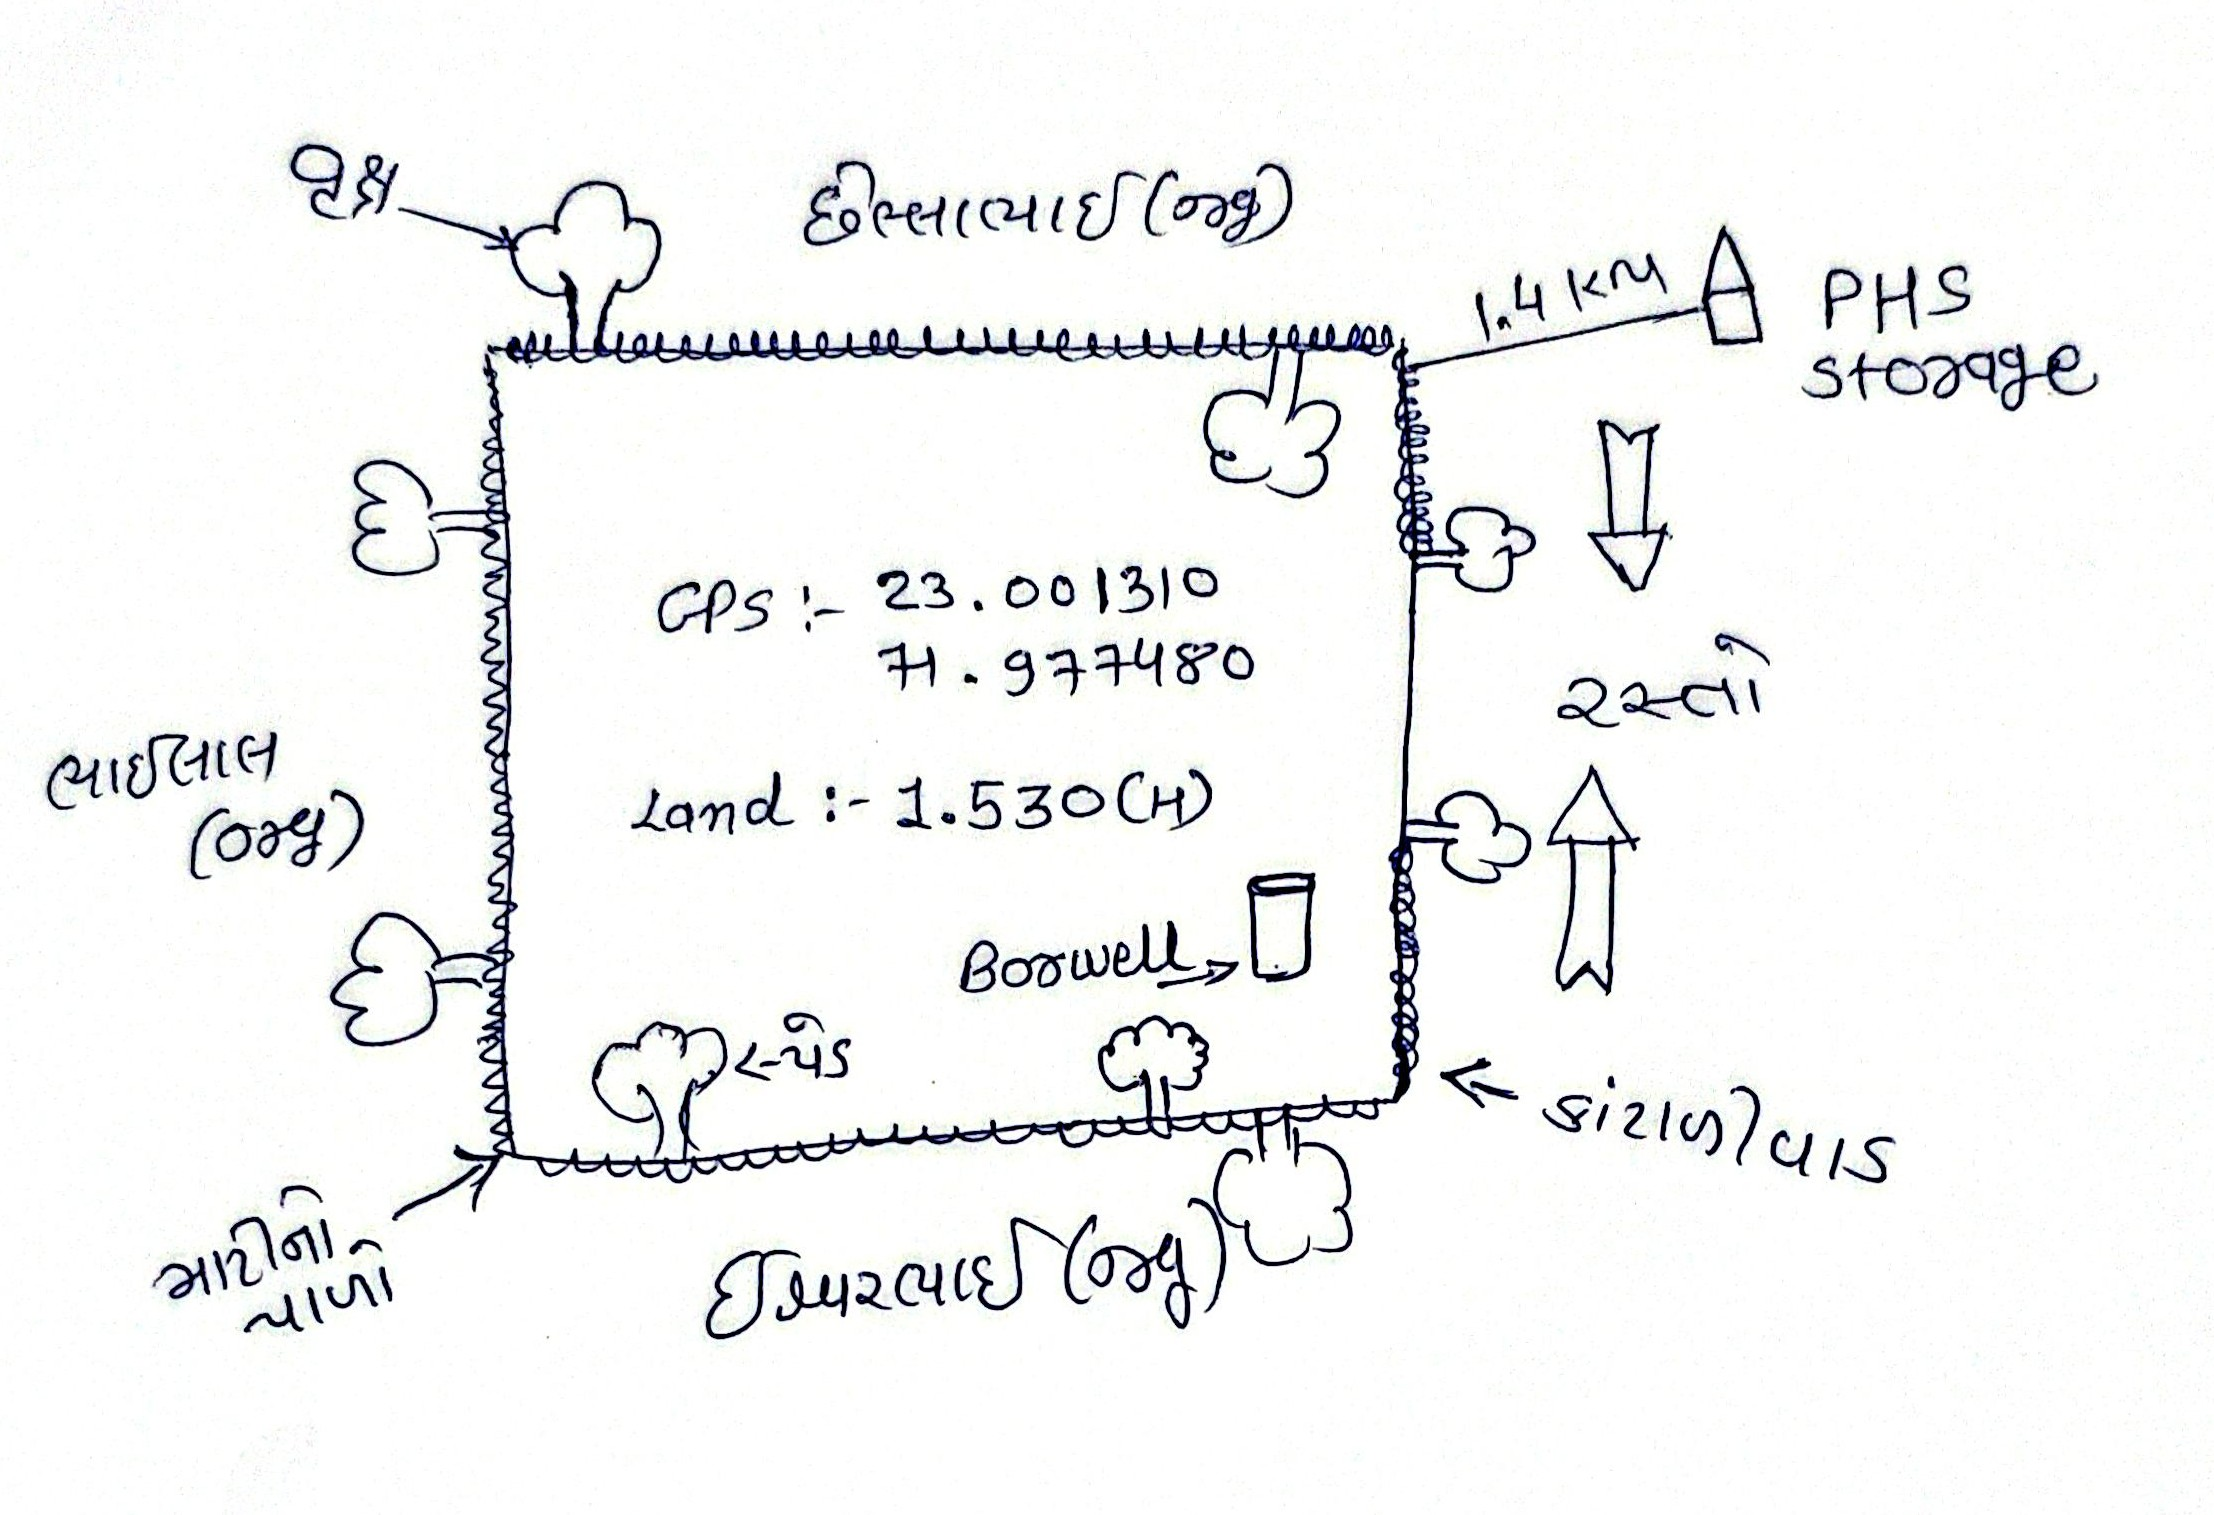 વૃક્ષ
છેલ્લાભાઈ (જીયુ)
1.4 KM
PHS
storage
GPS :- 23.001310
71.977480
રસ્તો
ભાઈલાલ
Land :- 1.530 (H)
Borwell
પેડ
કાંટાળી વાડ
માટીનો
પાળો
ઈશ્વરભાઈ